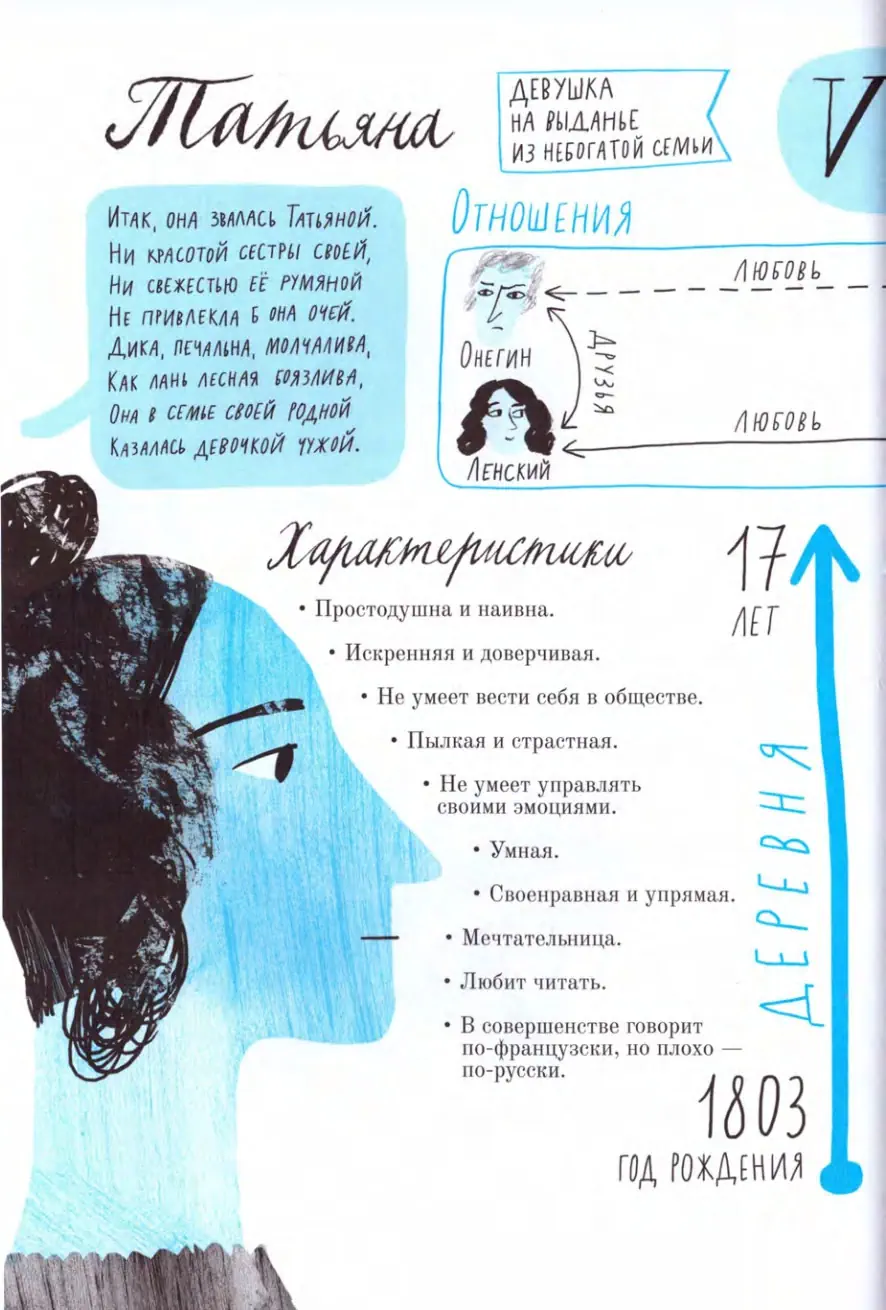 Татьяна
ДЕВУШКА
НА ВЫДАНЬЕ
ИЗ НЕБОГАТОЙ СЕМЬИ
V
Итак, она звалась Татьяной.
Ни красотой сестры своей,
Ни свежестью её румяной
Не привлекла б она очей.
Дика, печальна, молчалива,
Как лань лесная боязлива,
Она в семье своей родной
Казалась девочкой чужой.
Отношения
Онегин
Ленский
Друзья
Любовь
Любовь
Характеристики
• Простодушна и наивна.
• Искренняя и доверчивая.
• Не умеет вести себя в обществе.
• Пылкая и страстная.
• Не умеет управлять
своими эмоциями.
• Умная.
• Своенравная и упрямая.
• Мечтательница.
• Любит читать.
• В совершенстве говорит
по-французски, но плохо —
по-русски.
17
ЛЕТ
ДЕРЕВНЯ
1803
ГОД РОЖДЕНИЯ